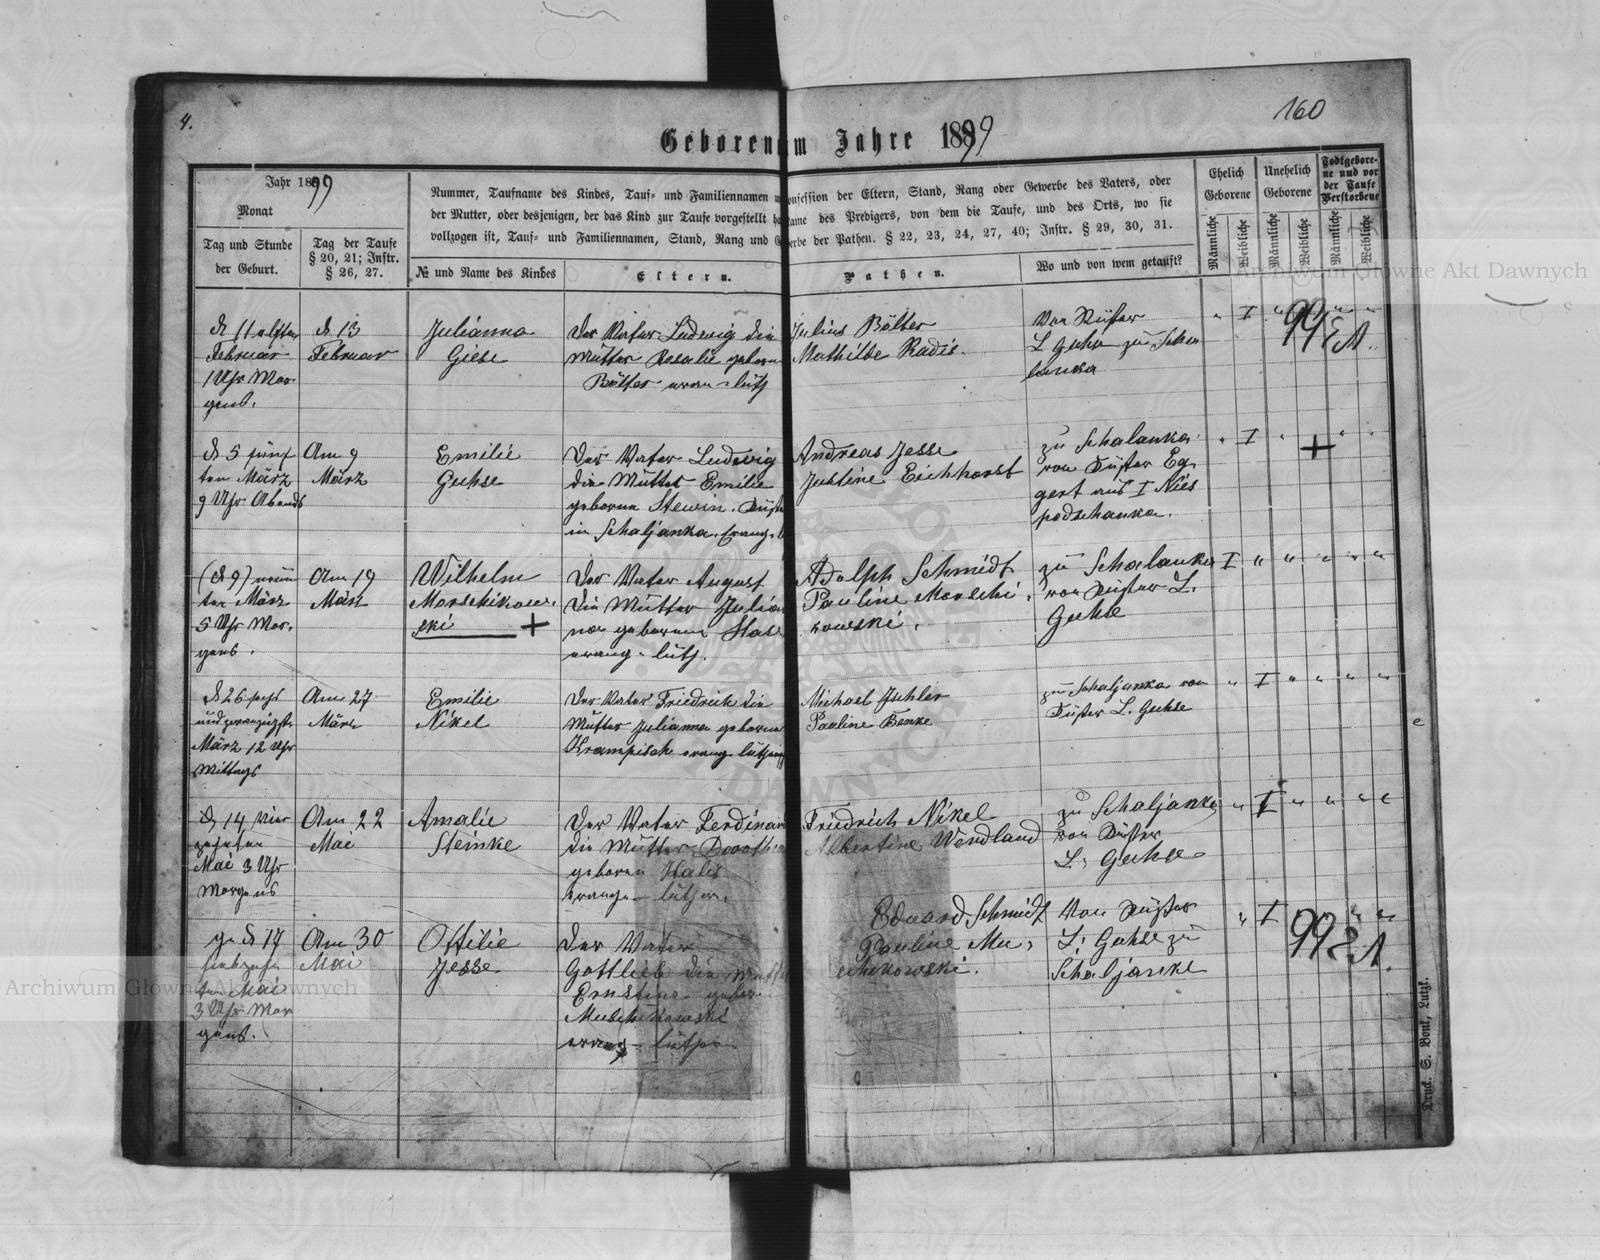 4.
160
Geboren im Jahre 1899
Jahr 1899
Monat
Tag und Stunde
der Geburt.
Tag der Taufe
§ 20, 21; Instr.
§ 26, 27.
Nummer, Taufname des Kindes, Tauf- und Familiennamen u Confession der Eltern, Stand, Rang oder Gewerbe des Vaters, oder
der Mutter, oder desjenigen, der das Kind zur Taufe vorgestellt ha Name des Predigers, von dem die Taufe, und des Orts, wo sie
vollzogen ist, Tauf- und Familiennamen, Stand, Rang und Gewerbe der Pathen. § 22, 23, 24, 27, 40; Instr. § 29, 30, 31.
№ und Name des Kindes
Eltern.
Pathen.
Wo und von wem getauft?
Ehelich
Geborene
Unehelich
Geborene
Todtgebore-
ne und vor
der Taufe
Verstorbene
Männliche
Weibliche
Männliche
Weibliche
Männliche
Weibliche
d 11 elften
Februar
1 Uhr Mor-
gens.
d 13
Februar
Julianna
Giese
Der Vater Ludwig die
Mutter Rosalie geboren
Bölter evan-luth
Julius Bölter
Mathilde Radis.
Von Küster
L Guhse zu Scha
lanka
I
99
d 5 fünf
ten März
9 Uhr Abends
Am 9
März
Emilie
Guhse
Der Vater Ludwig
die Mutter Emilie
geborene Stewin. Küster
in Schaljanka. Evang.
Andreas Jesse
Justine Eichhorst
zu Schalanka
von Küster Eg
gert aus I Nies
podschanka.
I
+
(d 9) neun
ten März
5 Uhr Mor.
gens.
Am 19
März
Wilhelm
Marschikow.
ski +
Der Vater August
die Mutter Julian
na geborene Hase
evang-luth.
Adolph Schmidt
Pauline Marschi.
kowski.
zu Schalanka
von Küster L.
Guhse
I
d 26 sechs
und zwanzigst
März 12 Uhr
Mittags
Am 27
März
Emilie
Nikel
Der Vater Friedrich die
Mutter Julianna geborene
Krampisch evang-luther
Michael
Pauline Benke
zu Schaljanka von
Küster L. Guhse
I
d 14 vier
zehnten
Mai 3 Uhr
Morgens
Am 22
Mai
Amalie
Steinke
Der Vater Ferdinan
die Mutter Dorothea
geboren Halis
evange-luther.
Friedrich Nikel
Albertine Wendland
zu Schaljanka
von Küster
L. Guhse
I
d 17
siebzehn
ten Mai
3 Uhr Mor
gens.
Am 30
Mai
Ottilie
Jesse
Der Vater
Gottlieb die Mutter
Ernstine gebor.
Muschikowski
evang-luther
Eduard Schmidt
Pauline Mu,
schikowski.
Von Küster
L. Guhse zu
Schaljanke
I
99
Druck. S. Bonk, Lutzk.
Archiwum Główne Akt Dawnych
Archiwum Główne Akt Dawnych